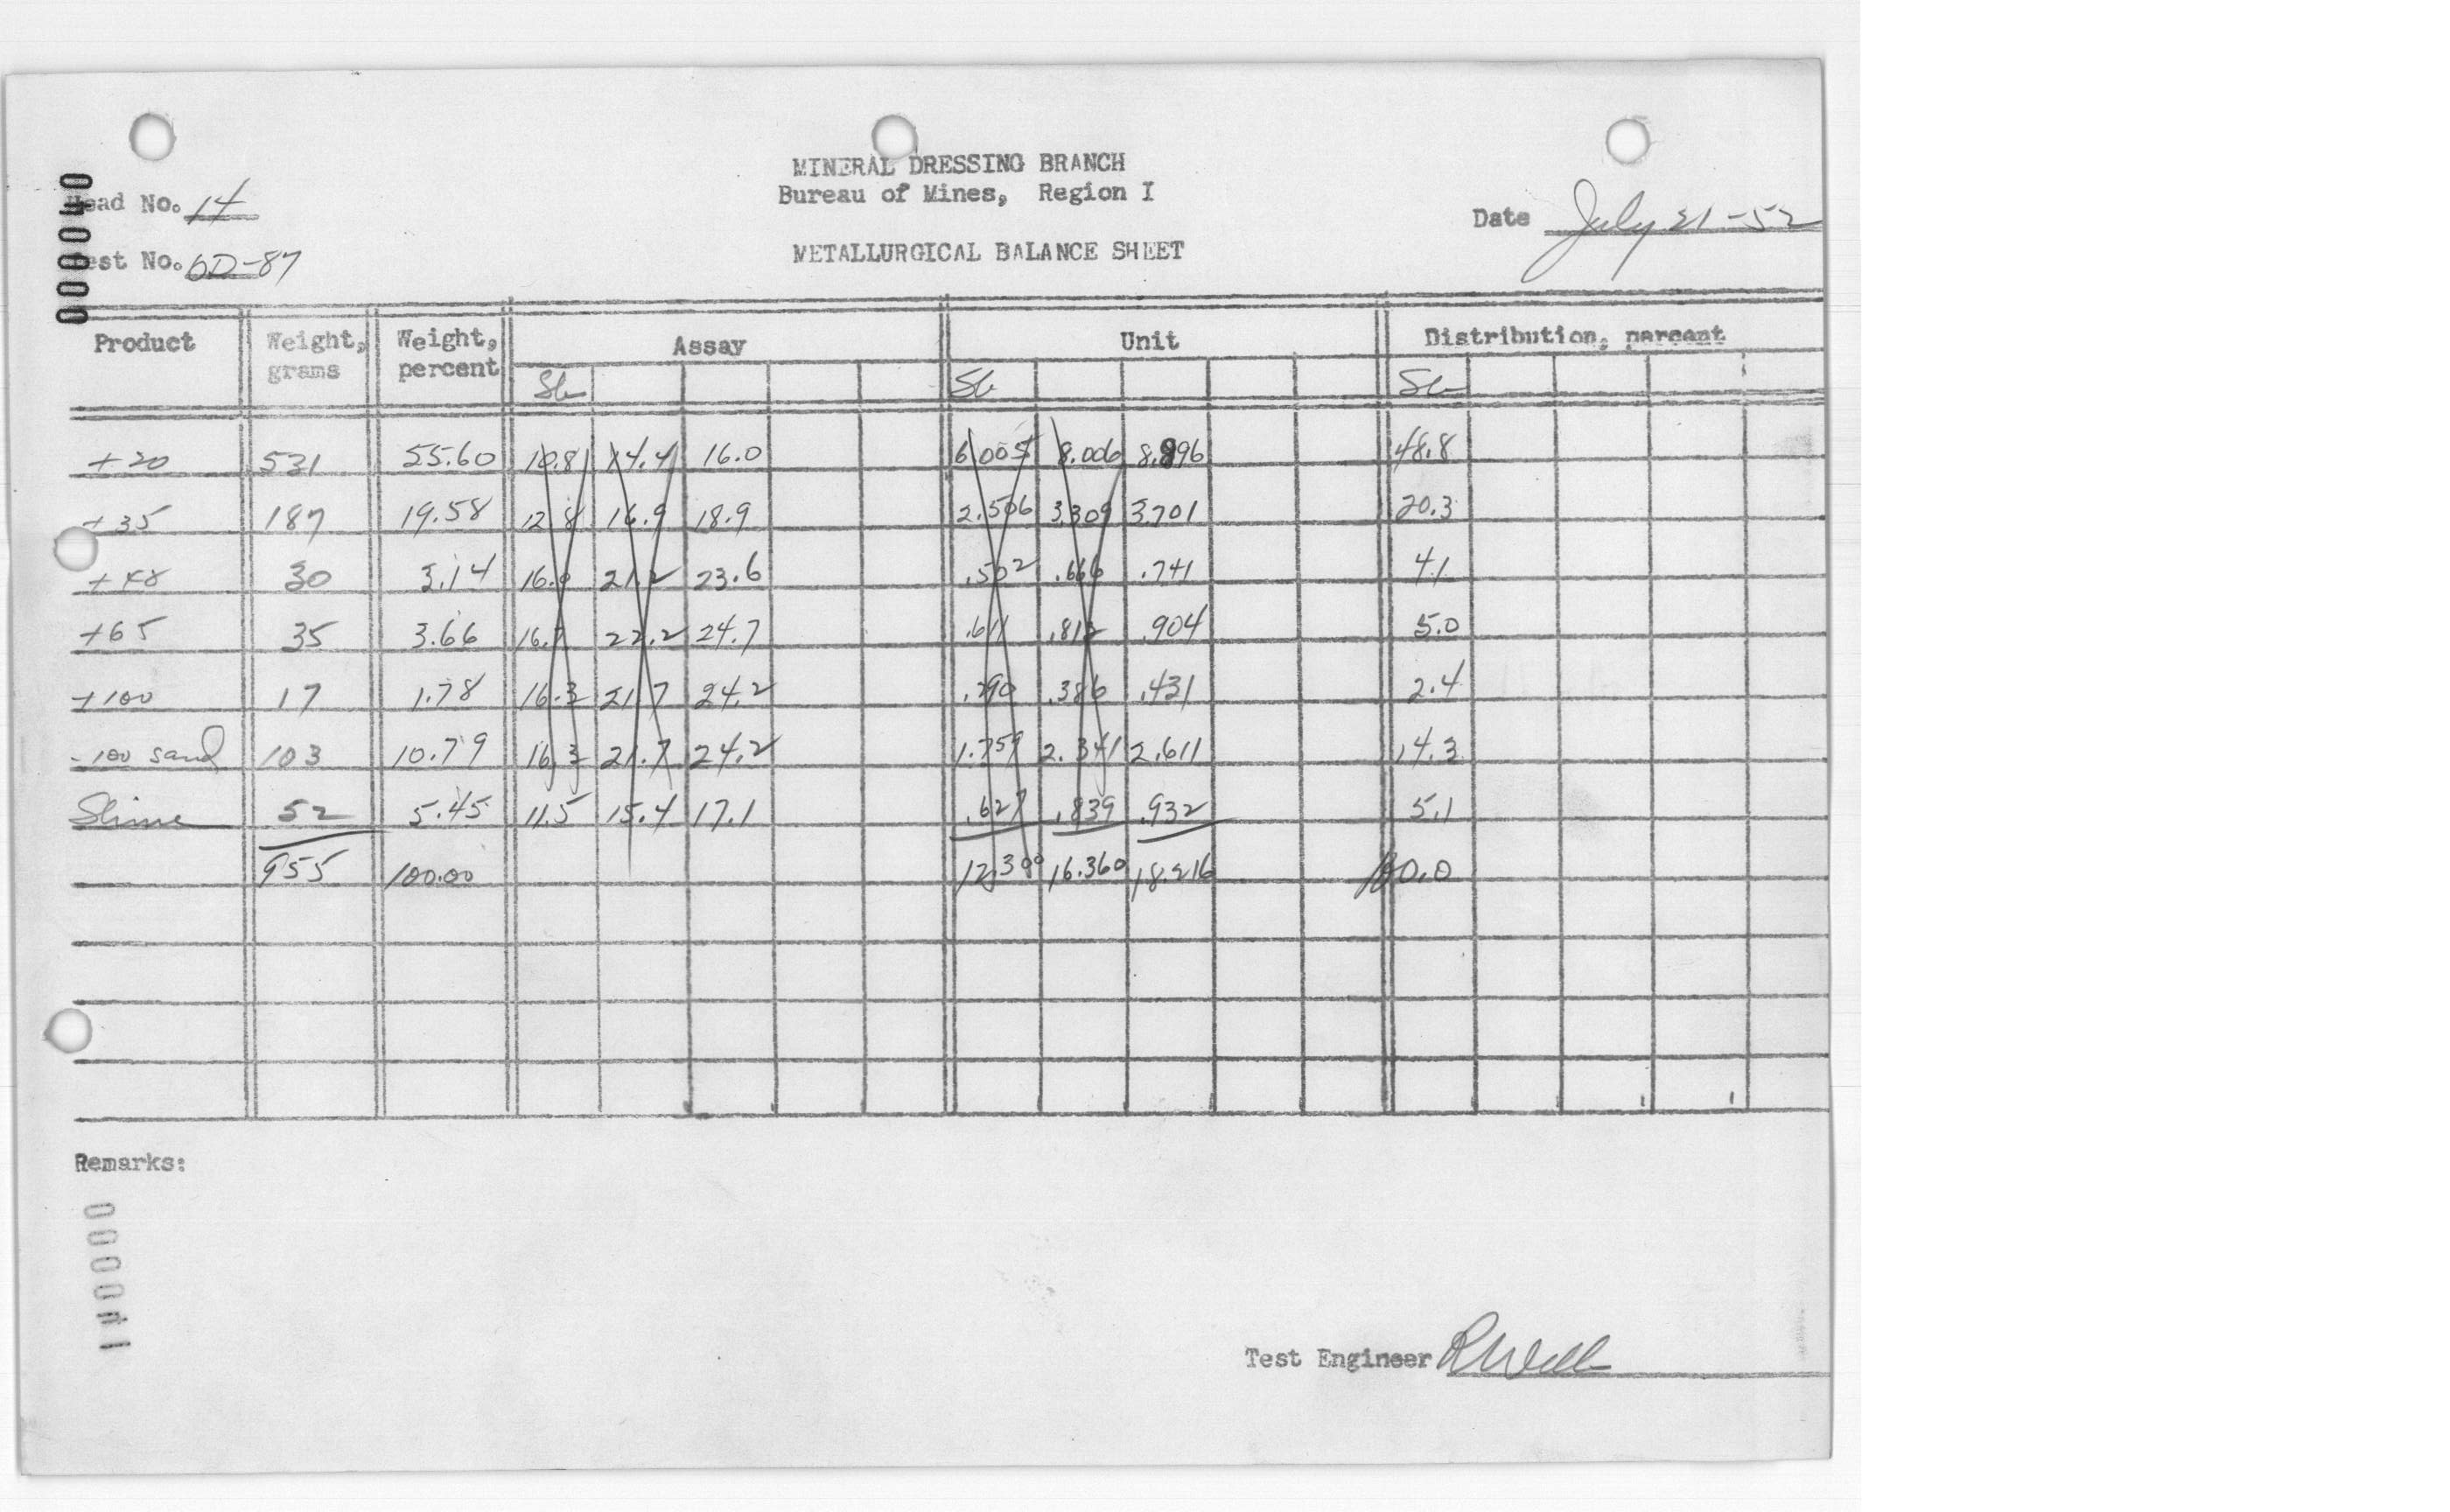 MINERAL DRESSING BRANCH
Bureau of Mines, Region I
Head No. 14
Date July 21-52
Test No. 6D-87
METALLURGICAL BALANCE SHEET
000040
Product Weight, grams Weight, percent Assay Unit Distribution, percent
Sb Sb Sb
+20 531 55.60 10.8 14.4 16.0 6.005 8.006 8.896 48.8
+35 187 19.58 12.8 16.9 18.9 2.506 3.309 3.701 20.3
+48 30 3.14 16.0 21.2 23.6 .502 .666 .741 4.1
+65 35 3.66 16.7 22.2 24.7 .611 .812 .904 5.0
+100 17 1.78 16.3 21.7 24.2 .290 .386 .431 2.4
-100 sand 103 10.79 16.3 21.7 24.2 1.759 2.341 2.611 14.3
Slime 52 5.45 11.5 15.4 17.1 .627 .839 .932 5.1
955 100.00 12.300 16.360 18.216 100.0
Remarks:
000041
Test Engineer